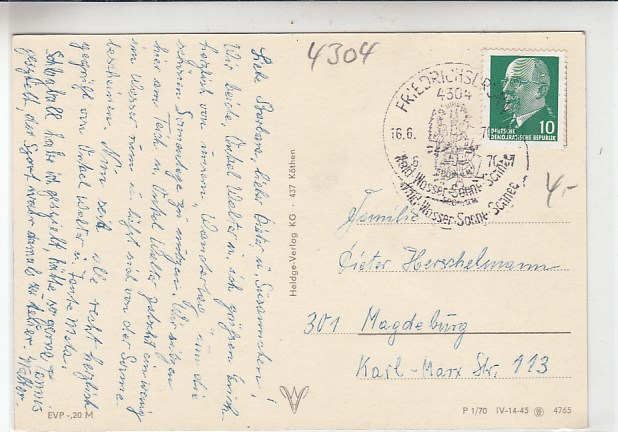 4304
Liebe Barbara, lieber Dieter u. Susannchen!
Wir beide, Onkel Walter u. ich grüßen Euch
herzlich von unserm Wandertag, um die
schönen Sonnentage zu nutzen. Wir sitzen
hier am Teich u. Onkel Walter planscht ein wenig
im Wasser rum u. läßt sich von der Sonne
bescheinen. Nun seid alle recht herzlich
gegrüßt von Onkel Walter u. Tante Meta.
habe ich gespielt, hätte so gerne
gespielt, der Sport
Walter.
EVP -,20 M
Heldge-Verlag KG · 437 Köthen
FRIEDRICHSBRUNN
4304
16.6.
70
Wald-Wasser-Sonne-Schnee
DEUTSCHE
DEMOKRATISCHE REPUBLIK
10
4,-
Familie
Dieter Herschelmann
301 Magdeburg
Karl-Marx Str. 113
P 1/70 IV-14-45 4765